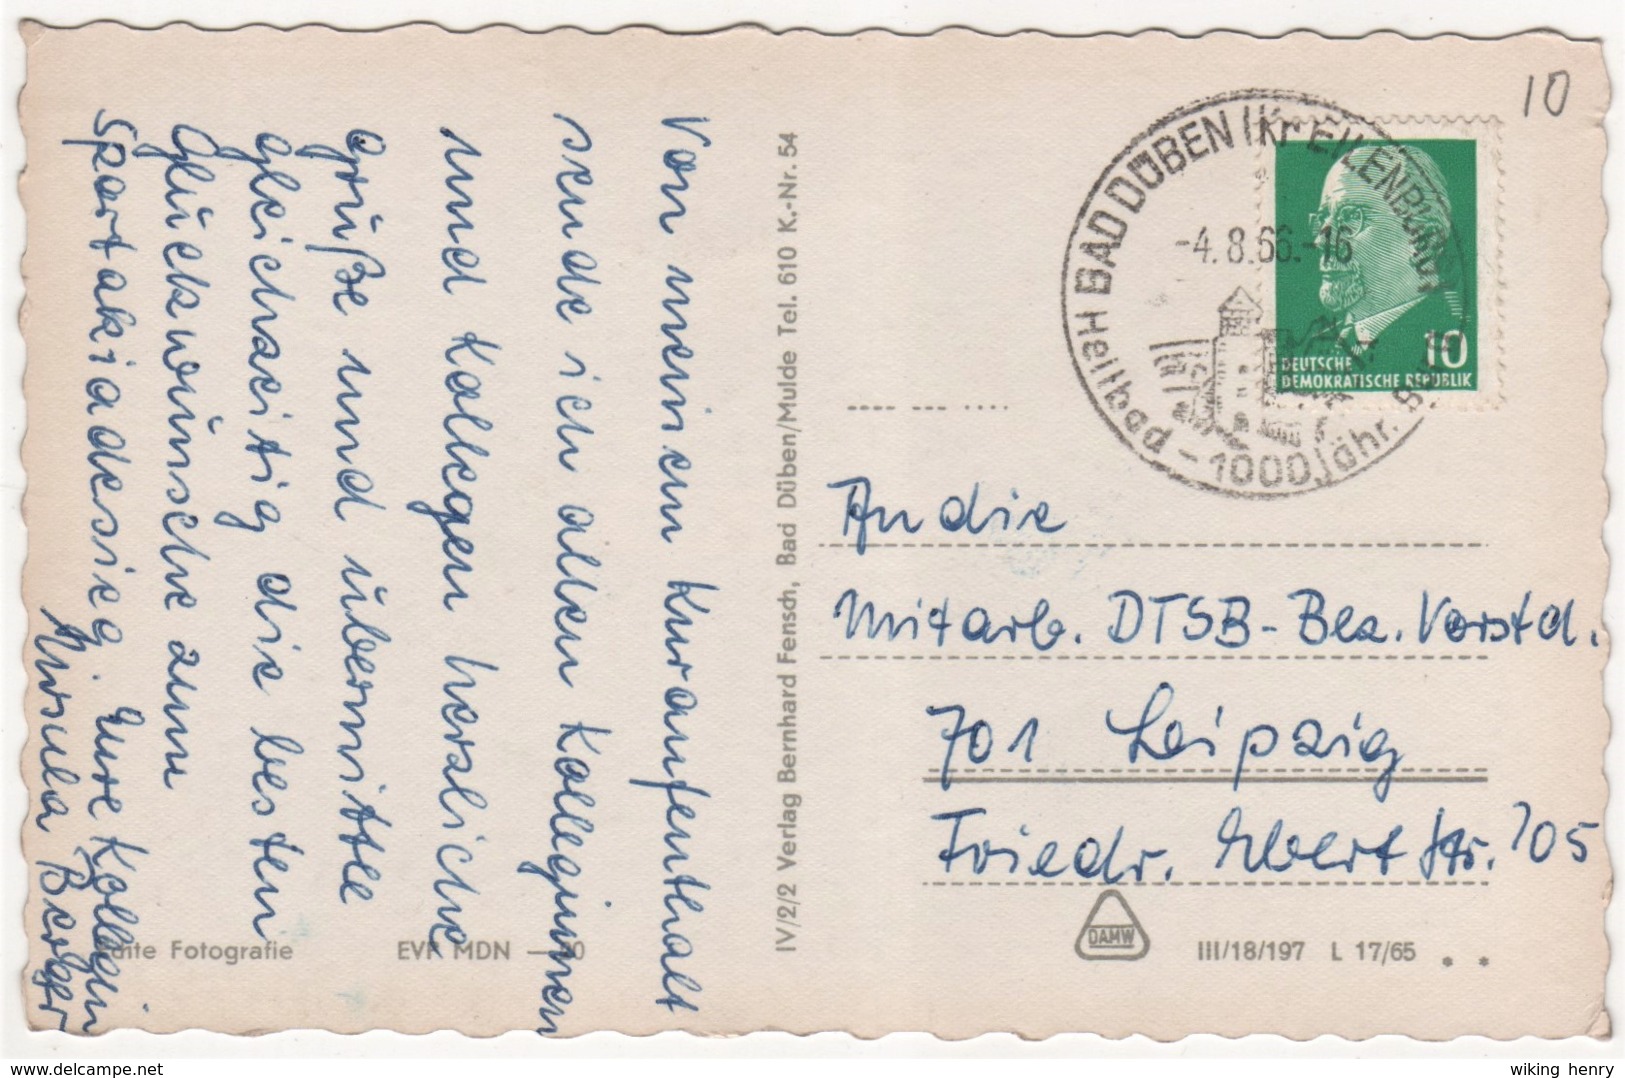 10
BAD DÜBEN (Kr EILENBURG)
-4.8.66.-16
Heilbad - 1000 jähr.
DEUTSCHE
DEMOKRATISCHE REPUBLIK
10
Von meinem Kuraufenthalt
sende ich allen Kolleginnen
und Kollegen herzliche
Grüße und übermittle
gleichzeitig die besten
Glückwünsche zum
Spartakiadesieg. Eure Kollegin
Ursula
IV/2/2 Verlag Bernhard Fensch, Bad Düben/Mulde Tel. 610 K.-Nr. 54
An die
Mitarb. DTSB-Bez. Vorstd.
701 Leipzig
Friedr. Ebert Str. 105
Fotografie
EVP MDN
DAMW
III/18/197 L 17/65 * *
wiking henry